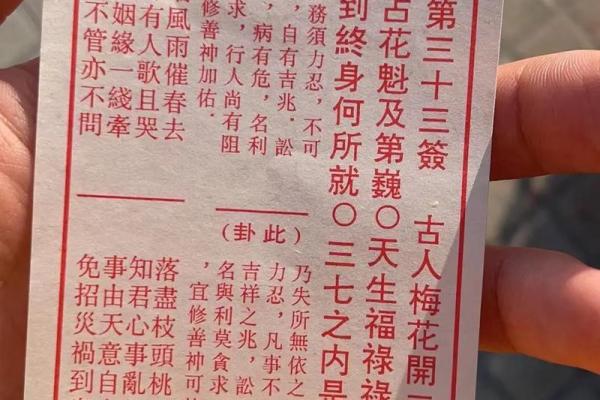 第三十三簽 古人梅花開
占花魁及第巍〇天生福祿祿
到終身何所就〇三七之內是
務須力忍，不可
，自有吉兆．訟
，病有危，名利
求，行人尚有阻
修善神加佑．
風雨催春去
有人歌且哭
姻緣一綫牽
不管亦不問
(此卦)
乃失所無依之
力忍，凡事不
吉祥之兆，訟
名與利莫貪求
，宜修善神可
落盡枝頭桃
知君心事亂
事由天意自
免招災禍到